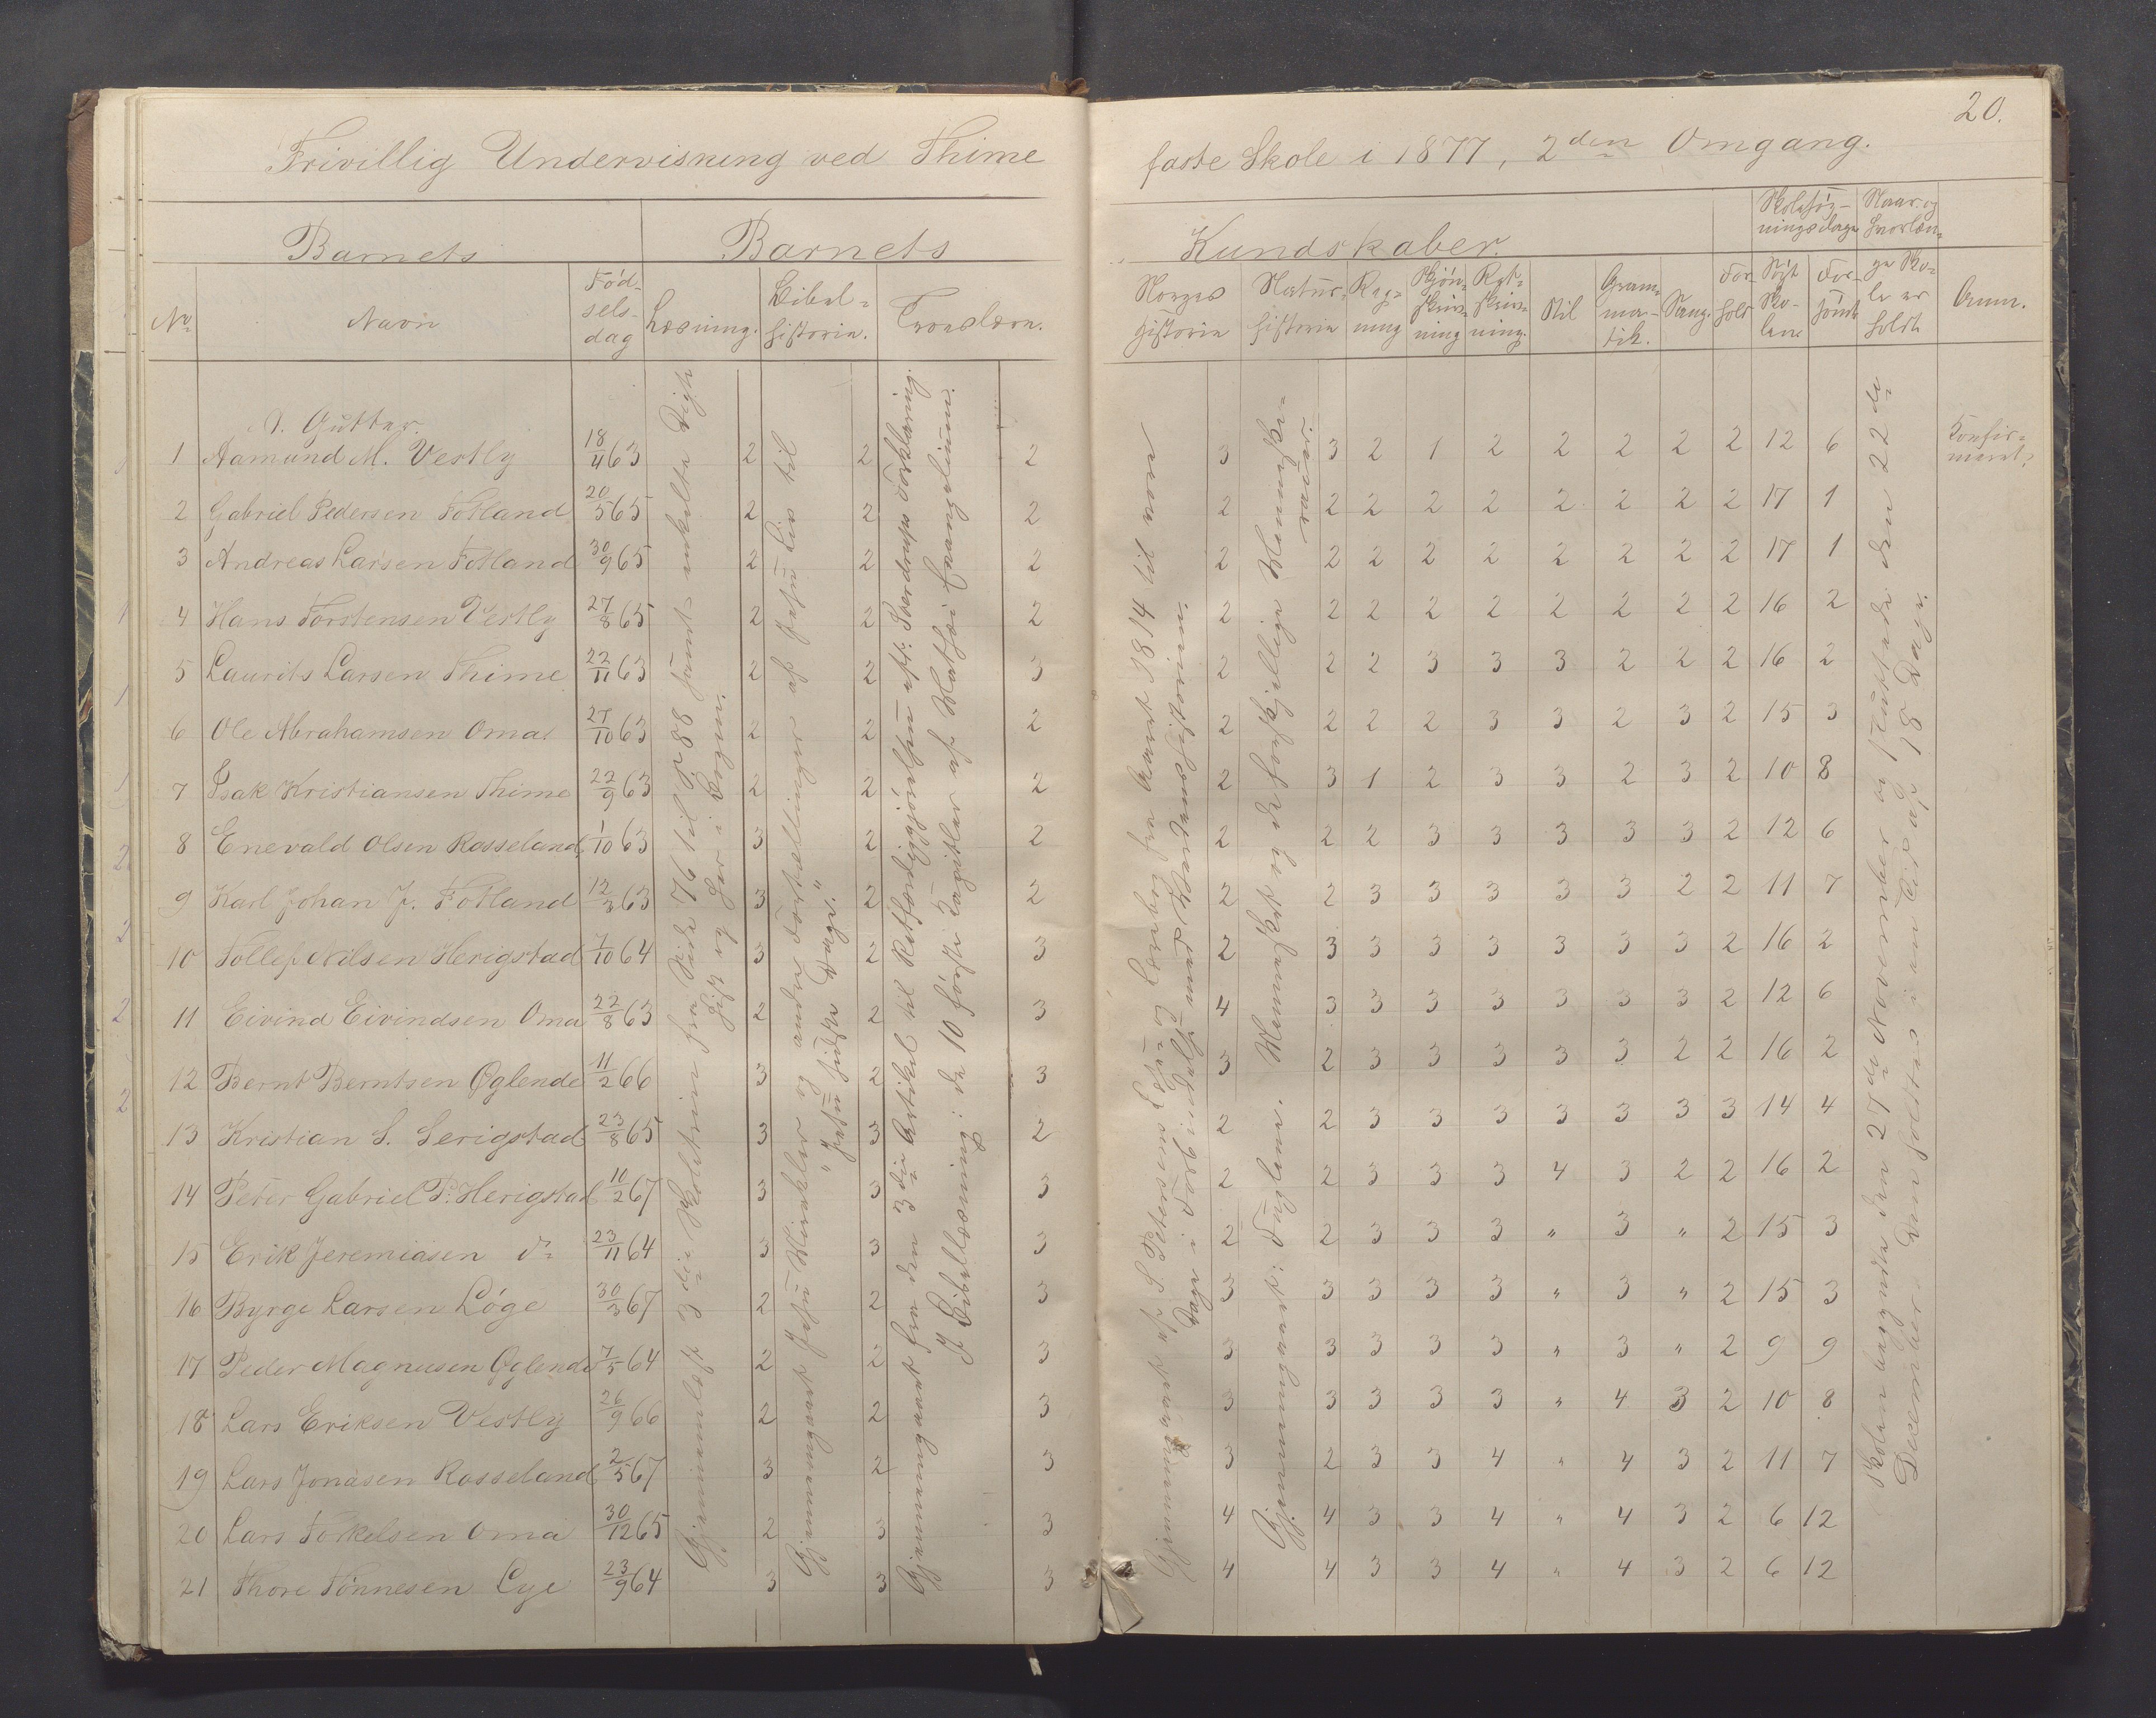 20.
Frivillig Undervisning ved Thime faste Skole i 1877, 2den Omgang.
Barnets Barnets Kundskaber. Skolesøg- Naar og
ningsdage hvorlæn-
No Navn Fød- Læsning. Bibel- Troeslære. Norges Natur- Reg- Skjøn- Ret- Stil Gram- Sang. For- Søgt For- ge Sko- Anm.
sels- historie. Historie historie ning skriv- skriv- ma- hold Sko- sømt le er
dag ning ning. tik. len holdt
A. Gutter.
1 Aamund M. Vestly 18/4 63 2 2 2 3 3 2 1 2 2 2 2 2 12 6 Konfir-
meret.
2 Gabriel Pedersen Fotland 20/5 65 2 2 2 2 2 2 2 2 2 2 2 2 17 1
3 Andreas Larsen Fotland 30/9 65 2 2 2 2 2 2 2 2 2 2 2 2 17 1
4 Hans Torstensen Vestly 27/8 65 2 2 2 2 2 2 2 2 2 2 2 2 16 2
5 Laurits Larsen Thime 22/11 63 2 2 3 2 2 2 3 3 3 2 2 2 16 2
6 Ole Abrahamsen Oma 27/10 63 2 2 2 2 2 2 2 3 3 2 3 2 15 3
7 Isak Kristiansen Thime 22/9 63 2 2 2 2 3 1 2 3 3 2 3 2 10 8
8 Enevald Olsen Rosseland 1/10 63 3 2 2 2 2 2 3 3 3 3 3 2 12 6
9 Karl Johan J. Fotland 12/3 63 3 2 2 2 2 3 3 3 3 3 2 2 11 7
10 Tollef Nilsen Herigstad 7/10 64 3 2 3 2 3 3 3 3 3 3 3 2 16 2
11 Eivind Eivindsen Oma 22/8 63 2 2 3 4 3 3 3 3 3 3 3 2 12 6
12 Bernt Berntsen Øglende 11/2 66 3 2 3 3 2 3 3 3 3 3 2 2 16 2
13 Kristian S. Serigstad 23/8 65 3 3 2 2 2 3 3 3 3 3 3 3 14 4
14 Peter Gabriel P. Herigstad 10/2 67 3 3 3 2 2 3 3 3 4 3 2 2 16 2
15 Erik Jeremiasen do 23/11 64 3 3 3 2 2 3 3 3 " 3 " 2 15 3
16 Byrge Larsen Løge 30/3 67 2 2 3 3 3 3 3 3 " 3 " 2 15 3
17 Peder Magnusen Øglende 7/5 64 2 2 3 3 3 3 3 3 " 3 " 2 9 9
18 Lars Eriksen Vestly 26/9 66 2 2 3 3 3 3 3 3 " 4 3 2 10 8
19 Lars Jonasen Rosseland 2/5 67 3 2 3 3 2 3 3 4 " 4 3 2 11 7
20 Lars Torkelsen Oma 30/12 65 2 3 3 4 4 3 3 4 " 4 3 2 6 12
21 Thore Tønnesen Lye 23/9 64 3 3 3 4 4 3 3 4 " 4 3 2 6 12
Gjennemlæst 3die Skoletrin fra Side 76 til p 88 samt enkelte Digte
hist og her i Bogen.
Gjennemgaaet Jesu Mirakler og andre Fortællinger af Jesu Liv til
"Jesu sidste Dage."
Gjennemgaaet fra den 3die Artikel til Retfærdiggjørelsen eft: Sverdrups Forklaring.
I Bibellæsning: de 10 første Kapitler af Mathæi Evangelium.
Gjennemgaaet af S. Petersens Læse- og Lærebog fra Aaret 1814 til vore
Dage i Forbindelse med Verdenshistorien.
Gjennemgaaet: Fuglene. Mennesket og de forskjellige Menneske-
racer.
Skolen begyndte den 27de November og sluttede den 22de
December. Den holdtes i en Tid af 18 Dage.